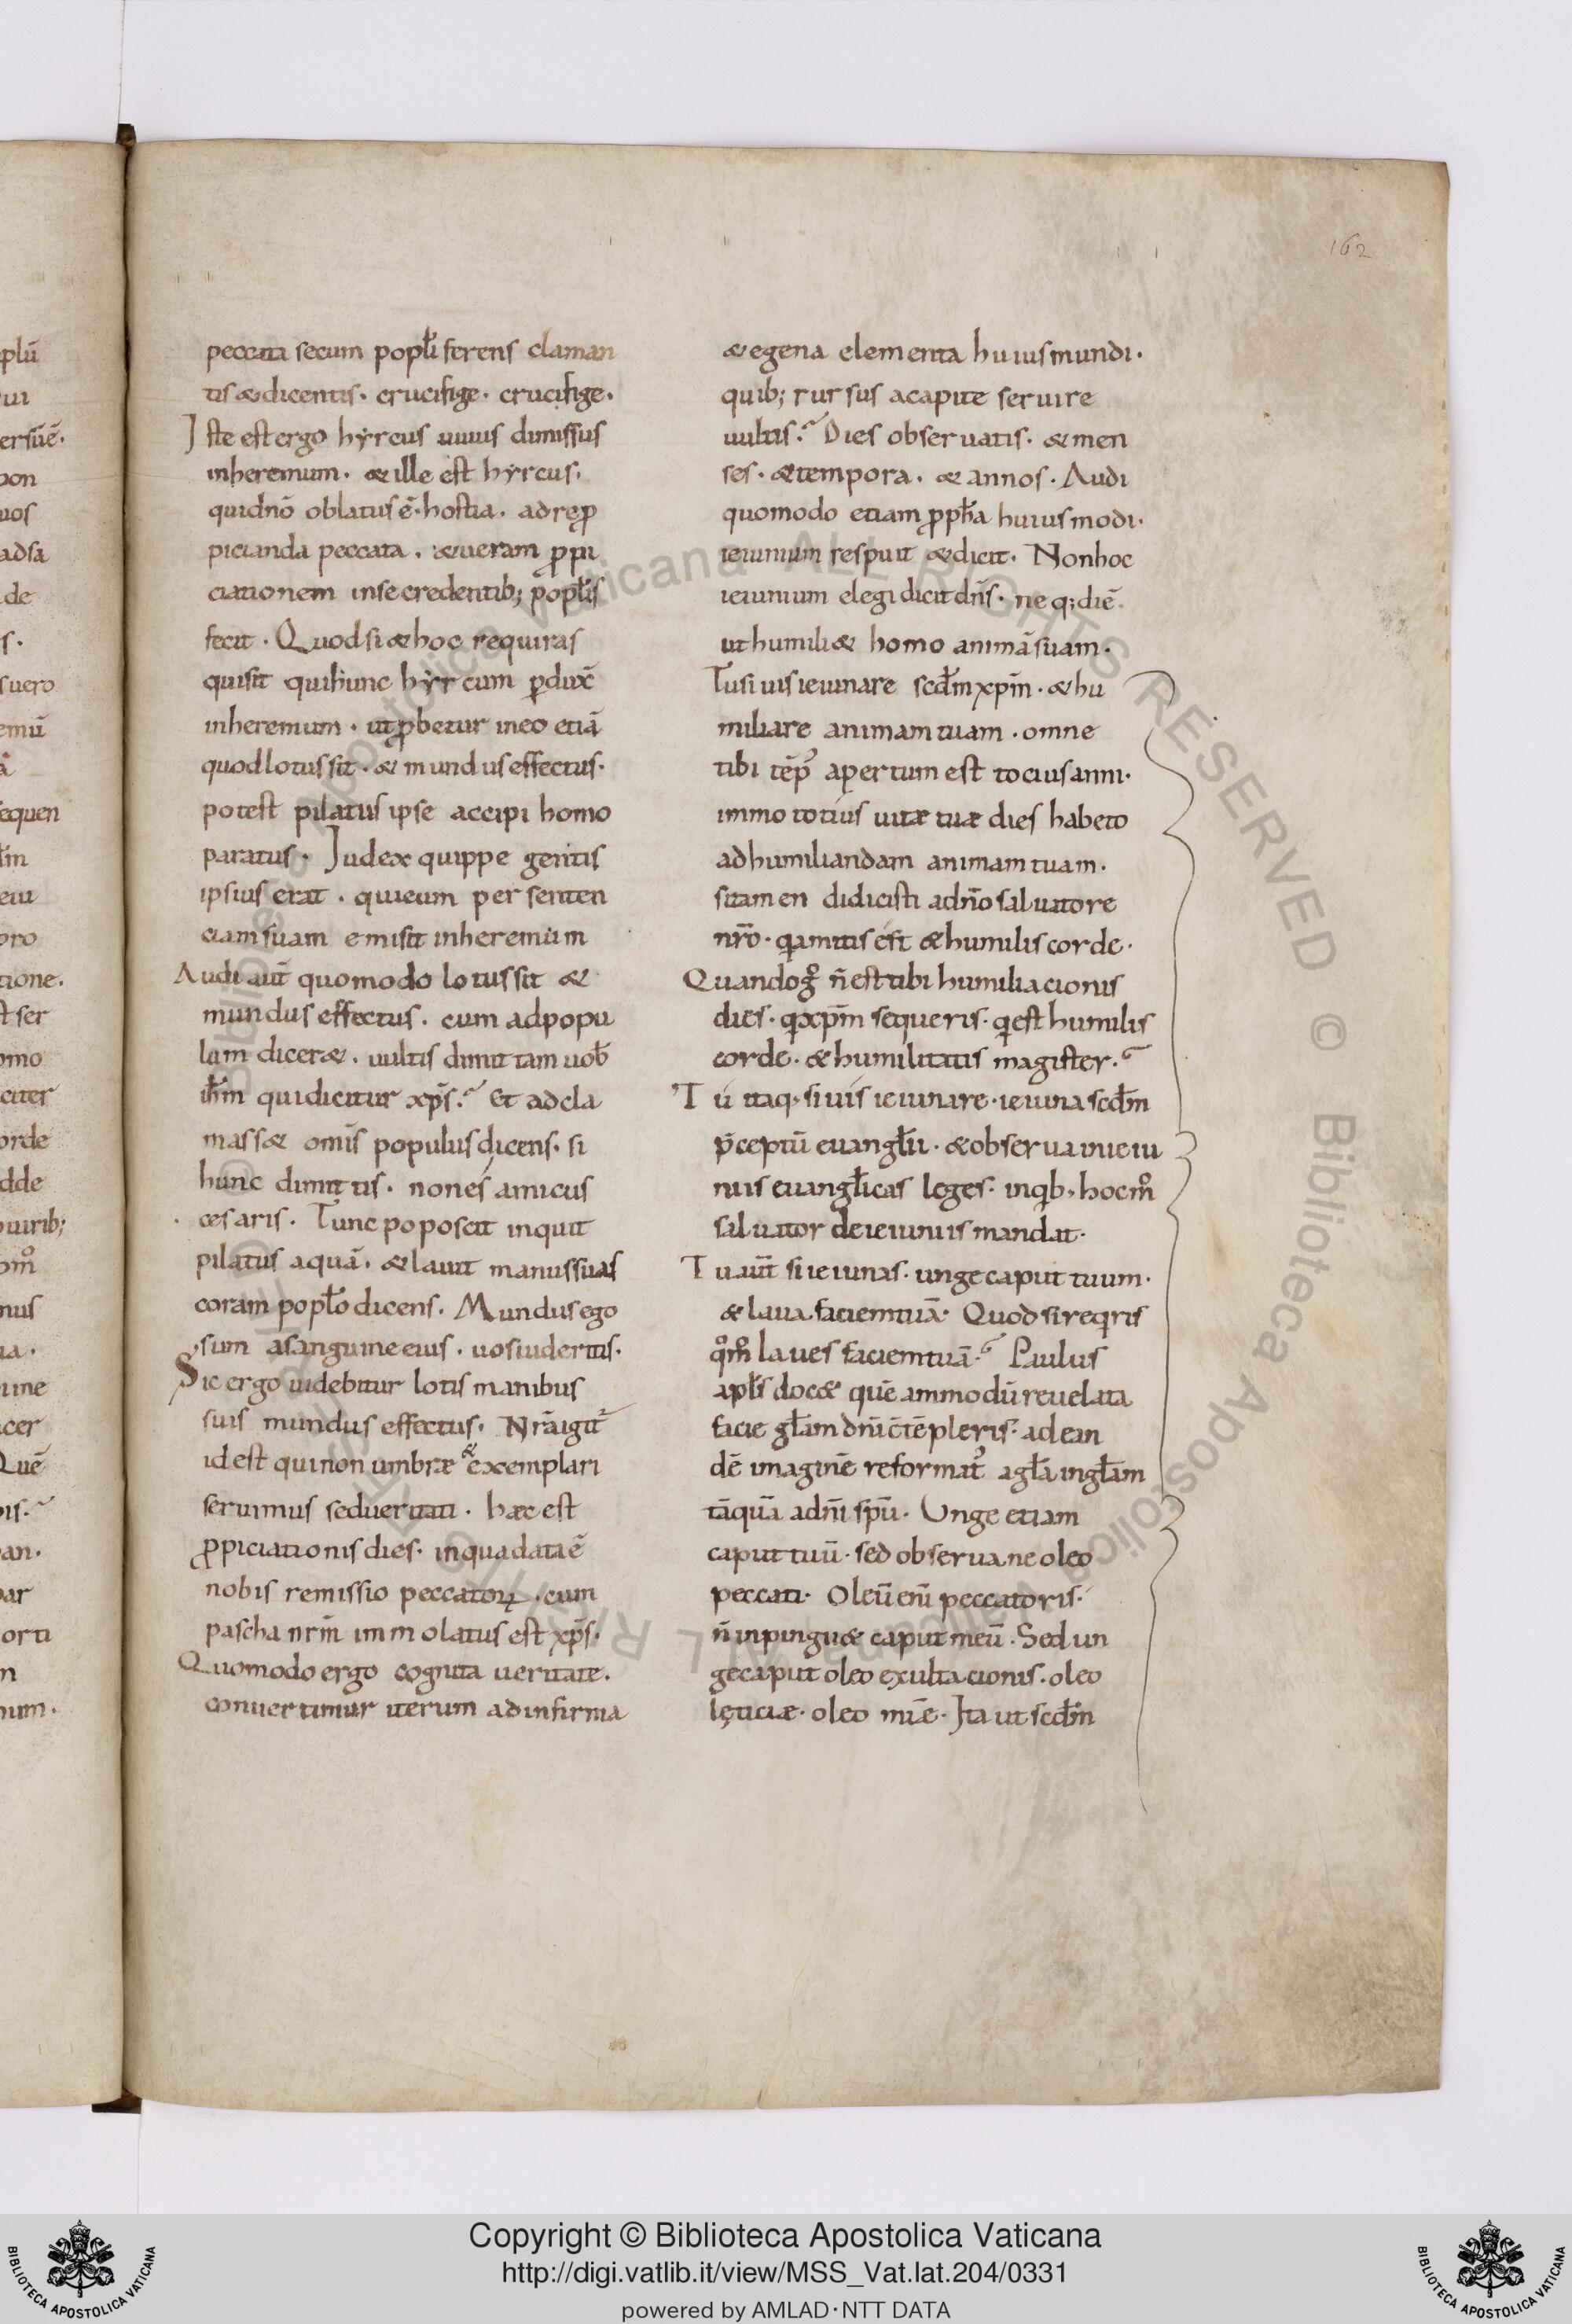 162
peccata secum popłi ferens claman
tis & dicentis · crucifige · crucifige ·
Iste est ergo hyrcus uiuus dimissus
inheremum · & ille est hyrcus ·
quidnō oblatus ē · hostia · ad rep̱ro
picianda peccata · & ueram ꝓpi
ciationem in se credentib; popłis
fecit · Quod si & hoc requiras
quis sit qui hunc hyrcum ꝑdux̄
inheremum · ut ꝓbetur in eo etiā
quod lotus sit · & mundus effectus ·
potest pilatus ipse accipi homo
paratus · Iudex quippe gentis
ipsius erat · qui eum per senten
ciam suam emisit inheremum
Audi aut̄ quomodo lotus sit &
mundus effectus · cum ad popu
lum dicer& · uultis dimittam uob̄
ih̄m qui dicitur xp̄s · Et adcla
mass& om̄is populus dicens · si
hunc dimittis · non es amicus
cesaris · Tunc poposcit inquit
pilatus aquā · & lauit manus suas
coram popło dicens · Mundus ego
sum a sanguine eius · uos uideritis ·
Sic ergo uidebitur lotis manibus
suis mundus effectus · Nr̄a igit᷑
id est qui non umbræ & exemplari
seruimus sed ueritati · hæc est
ꝓpiciationis dies · in qua data ē
nobis remissio peccatoꝝ · cum
pascha nr̄m immolatus est xp̄s ·
Quomodo ergo cognita ueritate ·
conuertimur iterum ad infirma
& egena elementa huius mundi ·
quib; rursus a capite seruire
uultis · Dies obseruatis · & men
ses · & tempora · & annos · Audi
quomodo etiam ꝓph̄a huiusmodi ·
ieiunium respuit & dicit · Non hoc
ieiunium elegi dicit dn̄s · neq; diē ·
ut humili& homo animā suam ·
Tu si uis ieiunare scd̄m xp̄m · & hu
miliare animam tuam · omne
tibi tēp᷒ apertum est tocius anni ·
immo totius uitæ tuæ dies habeto
ad humiliandam animam tuam ·
si tamen didicisti a dn̄o saluatore
nr̄o · qa mitis est & humilis corde ·
Quando gͦ n̄ est tibi humiliacionis
dies · q xp̄m sequeris · q est humilis
corde · & humilitatis magister ·
Tu itaq, si uis ieiunare · ieiuna scd̄m
p̄ceptū euangłii · & obserua in ieiu
niis euangłicas leges · in qib, hoc mͦ
saluator de ieiuniis mandat ·
Tu aut̄ si ieiunas · unge caput tuum ·
& laua faciem tuā · Quod si reqris
qͦmͦ laues faciem tuā · Paulus
apłs doc& quē ammodū reuelata
facie głam dn̄i c̄tēpleris · ad ean
dē imaginē reformat᷑ a gła in głam
tāquā a dn̄i sp̄u · Unge etiam
caput tuū · sed obserua ne oleo
peccati · Oleū eni̅ peccatoris ·
n̄ inpingu& caput meū · Sed un
ge caput oleo exultacionis · oleo
lęticiæ · oleo mi̅æ · Ita ut scd̄m
Copyright © Biblioteca Apostolica Vaticana
http://digi.vatlib.it/view/MSS_Vat.lat.204/0331
powered by AMLAD·NTT DATA